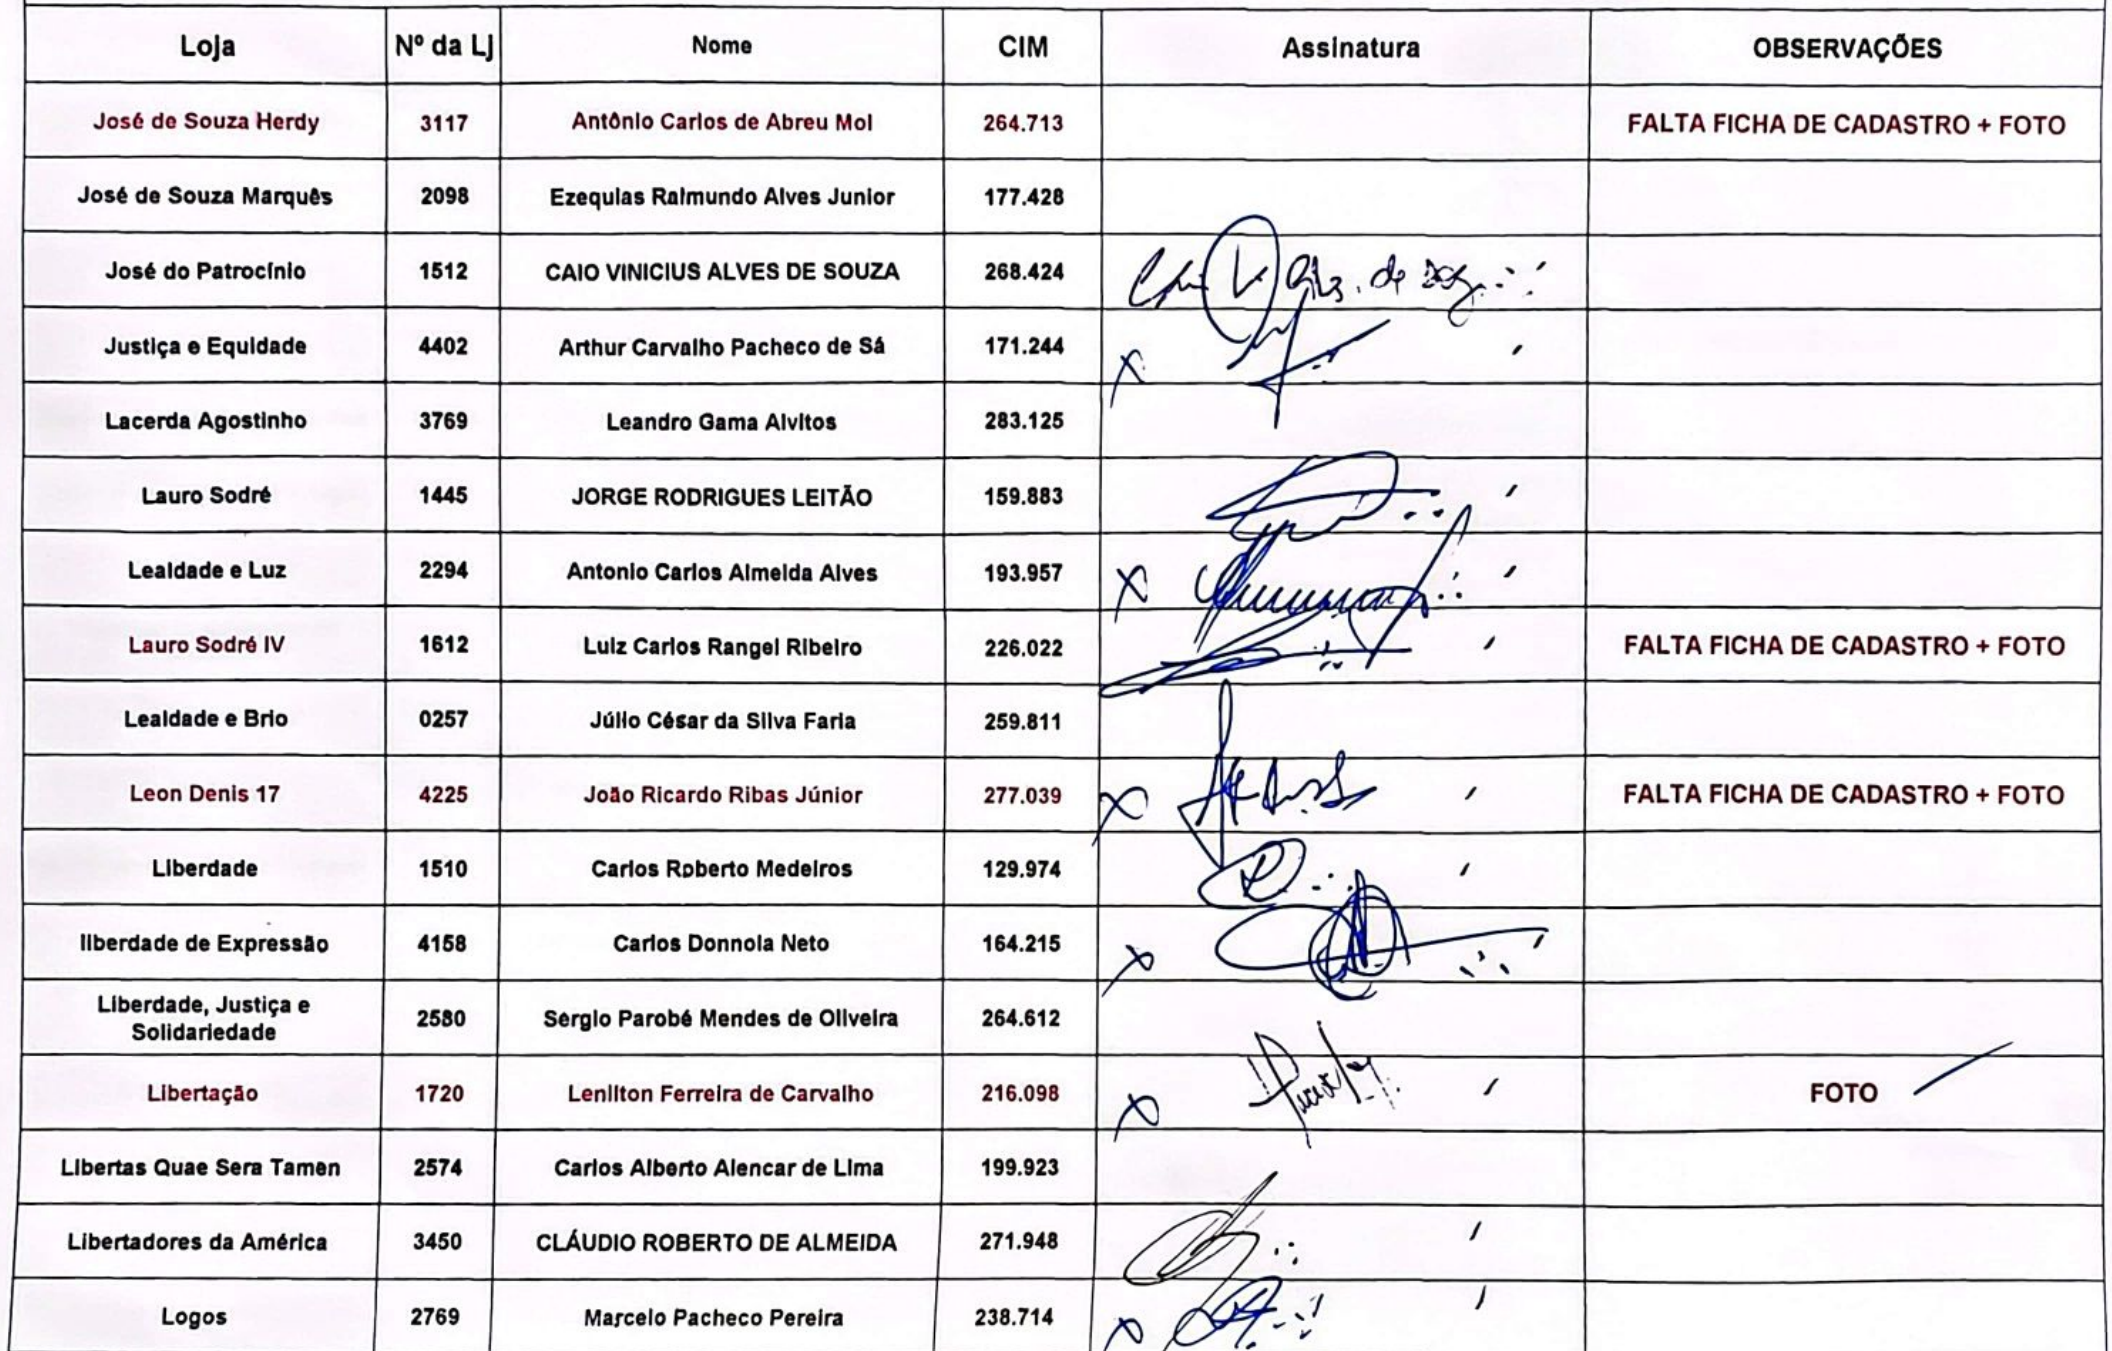 Loja Nº da Lj Nome CIM Assinatura OBSERVAÇÕES
José de Souza Herdy 3117 Antônio Carlos de Abreu Mol 264.713 FALTA FICHA DE CADASTRO + FOTO
José de Souza Marquês 2098 Ezequias Raimundo Alves Junior 177.428
José do Patrocínio 1512 CAIO VINICIUS ALVES DE SOUZA 268.424
Justiça e Equidade 4402 Arthur Carvalho Pacheco de Sá 171.244
Lacerda Agostinho 3769 Leandro Gama Alvitos 283.125
Lauro Sodré 1445 JORGE RODRIGUES LEITÃO 159.883
Lealdade e Luz 2294 Antonio Carlos Almeida Alves 193.957
Lauro Sodré IV 1612 Luiz Carlos Rangel Ribeiro 226.022 FALTA FICHA DE CADASTRO + FOTO
Lealdade e Brio 0257 Júlio César da Silva Faria 259.811
Leon Denis 17 4225 João Ricardo Ribas Júnior 277.039 FALTA FICHA DE CADASTRO + FOTO
Liberdade 1510 Carlos Roberto Medeiros 129.974
liberdade de Expressão 4158 Carlos Donnola Neto 164.215
Liberdade, Justiça e
Solidariedade 2580 Sergio Parobé Mendes de Oliveira 264.612
Libertação 1720 Lenilton Ferreira de Carvalho 216.098 FOTO
Libertas Quae Sera Tamen 2574 Carlos Alberto Alencar de Lima 199.923
Libertadores da América 3450 CLÁUDIO ROBERTO DE ALMEIDA 271.948
Logos 2769 Marcelo Pacheco Pereira 238.714